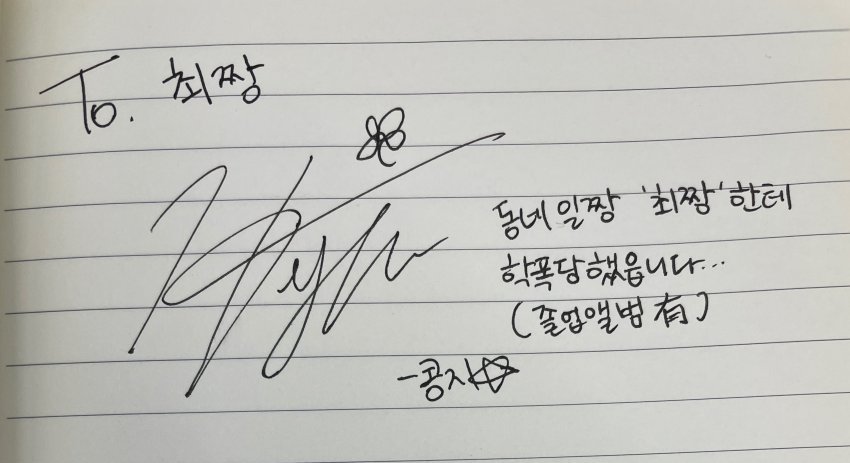 To. 최짱
동네 일짱 '최짬'한테
학폭당했읍니다...
(졸업앨범 有)
-콩지☆